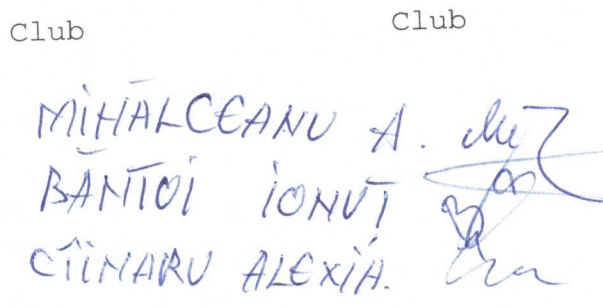 Club Club
MIHALCEANU A.
BĂNTOI IONUȚ
ALEXIA.